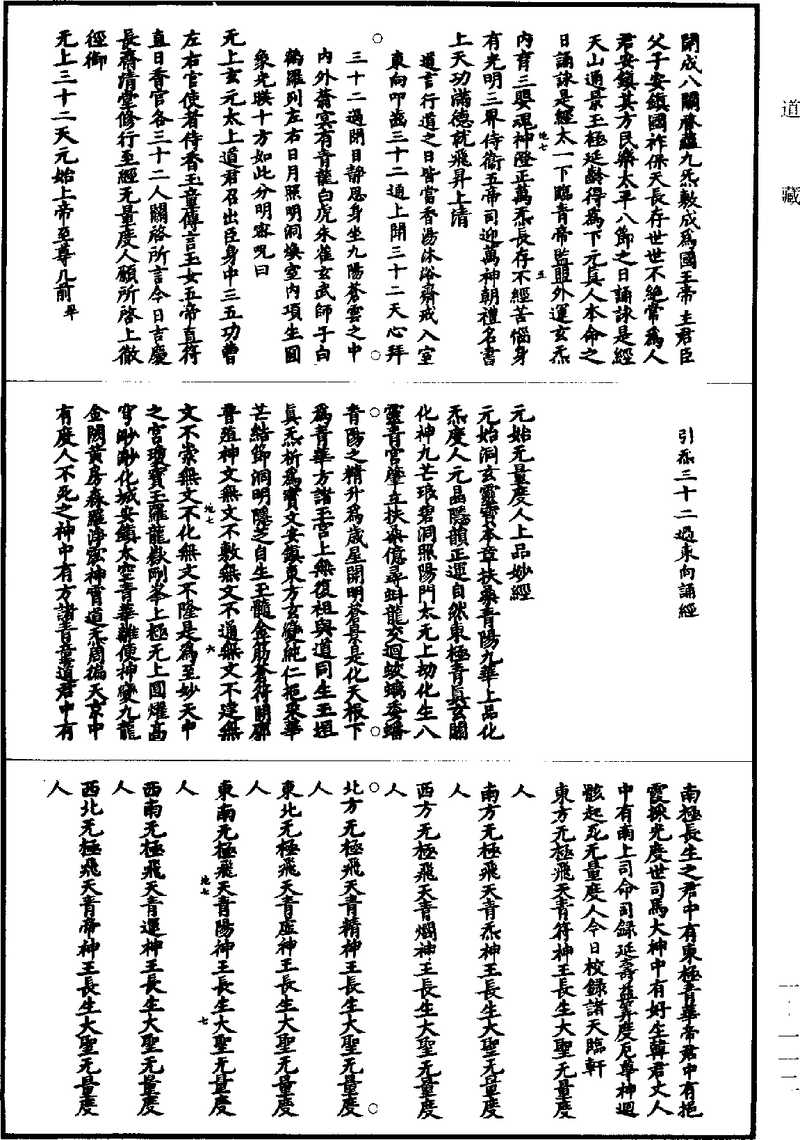 道藏
開成八關啓蘊九炁數成爲國王帝主君臣
父子安鎮國祚保天長存世世不絶常爲人
君安鎮其方民樂太平八節之日誦詠是經
天山通景玉極延齡得爲下元真人本命之
日誦詠是經太一下臨青帝監盟外運玄炁
内育三嬰魂神澄正萬炁長存不經苦惱身
有光明三界侍衛五帝司迎萬神朝禮名書
上天功滿德就飛昇上清
道言行道之日皆當香湯沐浴齋戒入室
東向叩齒三十二通上聞三十二天心拜
三十二過閉目靜思身坐九陽蒼雲之中
内外蓊宴有青龍白虎朱雀玄武師子白
鶴羅列左右日月照明洞煥室内項生圓
象光映十方如此分明密呪曰
无上玄元太上道君召出臣身中三五功曹
左右官使者侍香玉童傳言玉女五帝直符
直日香官各三十二人關啓所言今日吉慶
長齋清堂修行至經无量度人願所啓上徹
徑御
无上三十二天元始上帝至尊几前畢
地七
五
引炁三十二過東向誦經
元始无量度人上品妙經
元始洞玄靈寶本章扶桑青陽九華上品化
炁度人元品隱韻正運自然東極青真玄關
化神九芒琅碧洞照陽門太无上劫化生八
靈青宮肇立扶桑億尋虯龍交迴蛟螭委蟠
青陽之精升爲歲星開明蒼昊是化天根下
爲青華方諸玉宮上無復祖與道同生玉堀
真炁析爲寶文安鎮東方玄變純仁苞采華
芒結飾洞明隱芝自生玉髓金筋蒼符開廓
普殖神文無文不敷無文不通無文不建無
文不崇無文不化無文不隆是爲至妙天中
之宮瓊寶玉羅龍嶽剛峯上極无上圓燿高
穹眇眇化城安鎮太空青華離便神變九龍
金闕黄房森羅淨敷神霄道炁周徧天京中
有度人不死之神中有方諸青童道君中有
地七
六
南極長生之君中有東極青華帝君中有挹
霞採光度世司馬大神中有好生韓君丈人
中有南上司命司録延壽益筭度厄尊神迴
骸起死无量度人今日校録諸天臨軒
東方无極飛天青符神王長生大聖无量度
人
南方无極飛天青炁神王長生大聖无量度
人
西方无極飛天青爛神王長生大聖无量度
人
北方无極飛天青精神王長生大聖无量度
人
東北无極飛天青虚神王長生大聖无量度
人
東南无極飛天青陽神王長生大聖无量度
人
西南无極飛天青運神王長生大聖无量度
人
西北无極飛天青帝神王長生大聖无量度
人
地七
七